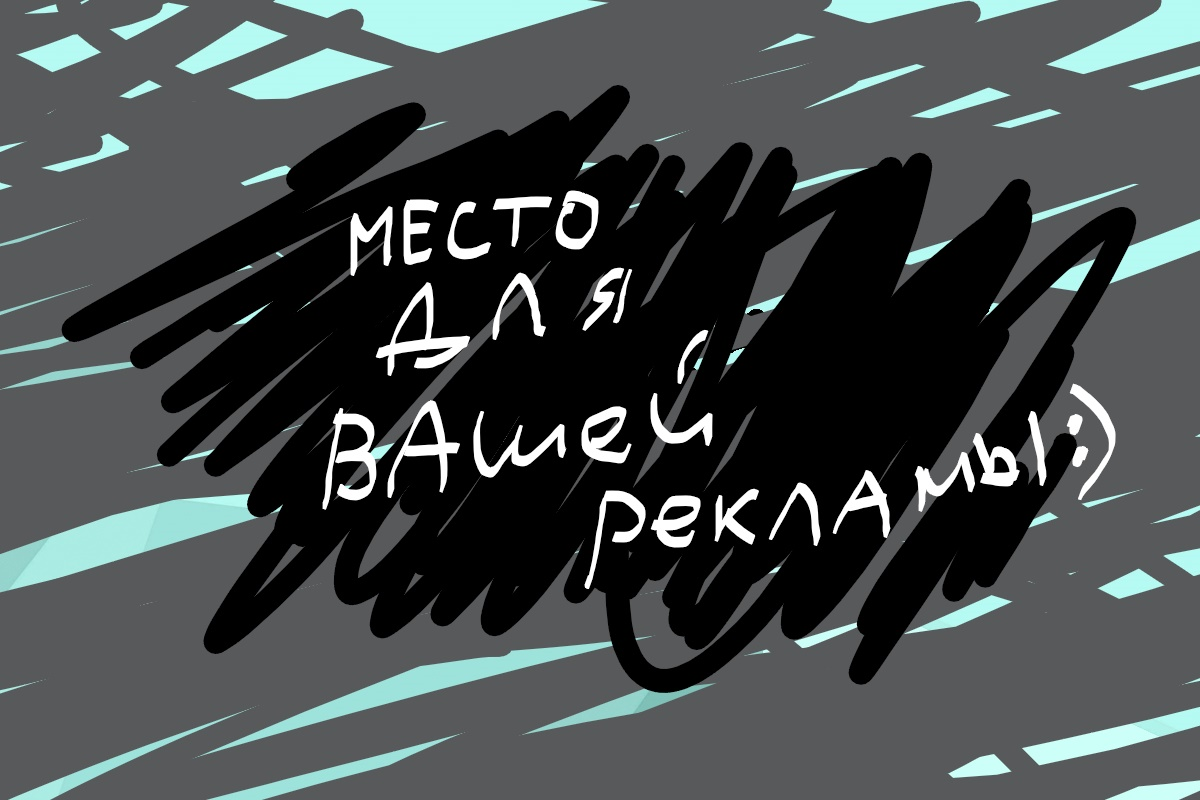 МЕСТО
ДЛЯ
ВАШЕЙ
РЕКЛАМЫ:)